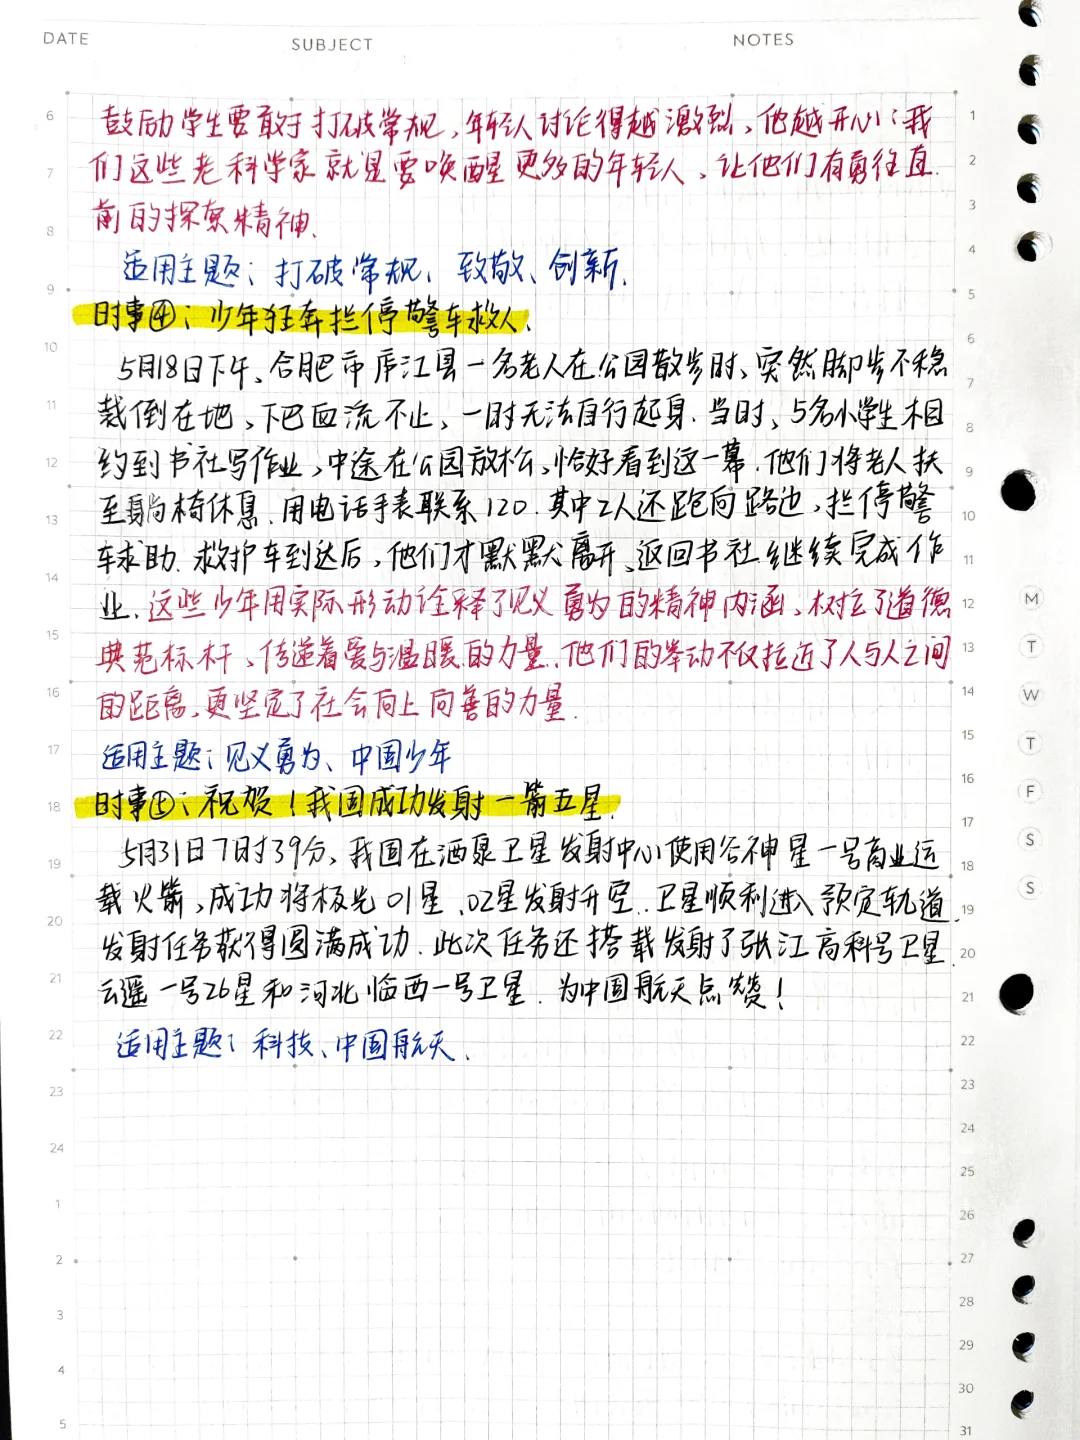 DATE SUBJECT NOTES
鼓励学生要敢于打破常规,年轻人讨论得越激烈,他越开心:我
们这些老科学家就是要唤醒更多的年轻人,让他们有勇往直
前的探索精神.
适用主题:打破常规、致敬、创新.
时事④:少年狂奔拦停警车救人.
5月18日下午,合肥市庐江县一名老人在公园散步时,突然脚步不稳
栽倒在地,下巴血流不止,一时无法自行起身.当时,5名小学生相
约到书社写作业,中途在公园放松,恰好看到这一幕.他们将老人扶
至躺椅休息.用电话手表联系120.其中2人还跑向路边,拦停警
车求助.救护车到达后,他们才默默离开,返回书社继续完成作
业.这些少年用实际形动诠释了见义勇为的精神内涵,树立了道德
典范标杆,传递着爱与温暖的力量.他们的举动不仅拉近了人与人之间
的距离,更坚定了社会向上向善的力量.
适用主题:见义勇为、中国少年
时事⑤:祝贺!我国成功发射一箭五星.
5月31日7时39分,我国在酒泉卫星发射中心使用谷神星一号商业运
载火箭,成功将极光01星、02星发射升空.卫星顺利进入预定轨道.
发射任务获得圆满成功.此次任务还搭载发射了张江高科号卫星.
云遥一号26星和河北临西一号卫星.为中国航天点赞!
适用主题:科技、中国航天.
6
7
8
9
10
11
12
13
14
15
16
17
18
19
20
21
22
23
24
1
2
3
4
5
1
2
3
4
5
6
7
8
9
10
11
12
13
14
15
16
17
18
19
20
21
22
23
24
25
26
27
28
29
30
31
M
T
W
T
F
S
S